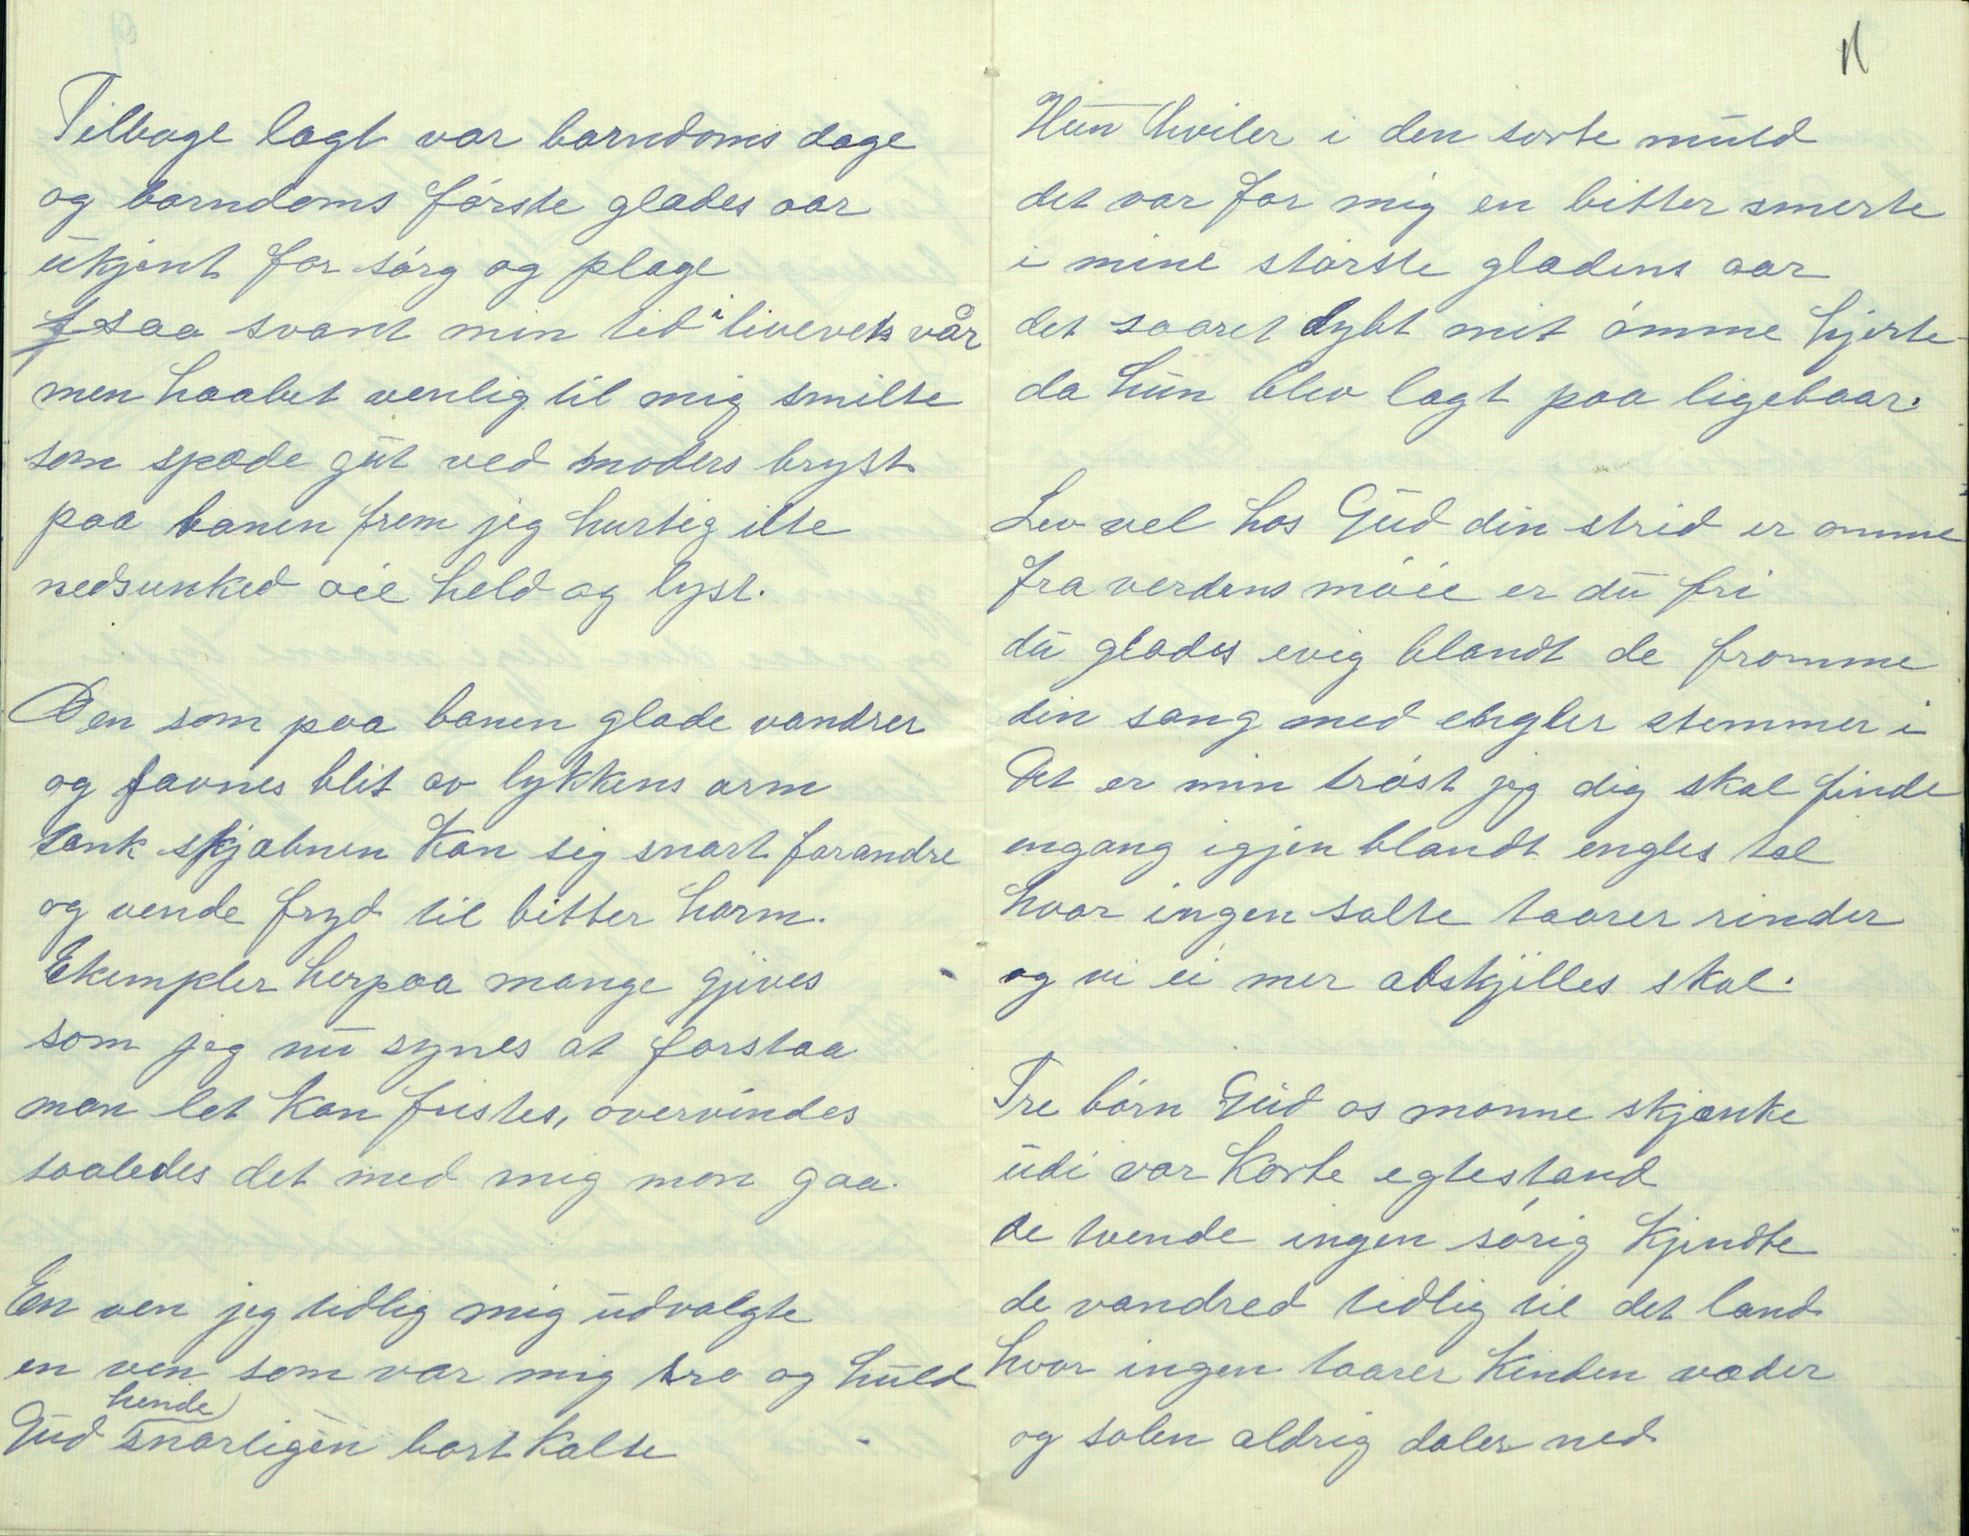 Tilbage lagt var barndoms dage
og barndoms første glædes aar
ukjent for sórg og plage
saa svant min tid i livevets vår
men haabet venlig til mig smilte
som spæde gut ved moders bryst
paa banen frem jeg hurtig ilte
nedsunked oie held og lyst.
Den som paa banen glade vandrer
og favnes blit av lykkens arm
tænk skjæbnen kan sig snart forandre
og vende fryd til bitter harm.
Ekempler herpaa mange gjives
som jeg nu synes at forstaa
man let kan fristes, overvindes
saaledes det med mig mon gaa.
En ven jeg tidlig mig udvalgte
en ven som var mig tro og huld
Gud hende snarligen bort kalte
11
Hun hviler i den sorte muld
det var for mig en bitter smerte
i mine største glædens aar
det saaret dybt mit ómme hjerte
da hun blev lagt paa ligebaar.
Lev vel hos Gud din strid er omme
fra verdens móie er du fri
du glædes evig blandt de fromme
din sang med engler stemmer i
Det er min tróst jeg dig skal finde
engang igjen blandt engles tal
hvor ingen salte taarer rinder
og vi ei mer adskjilles skal.
Tre bórn Gud os monne skjænke
udi vor korte egtestand
de tvende ingen sórig kjendte
de vandred tidlig til det land
hvor ingen taarer kinden væder
og solen aldrig daler ned